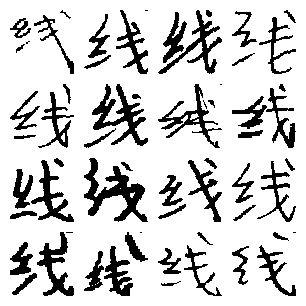 线线线线
线线线线
线线线线
线线线线